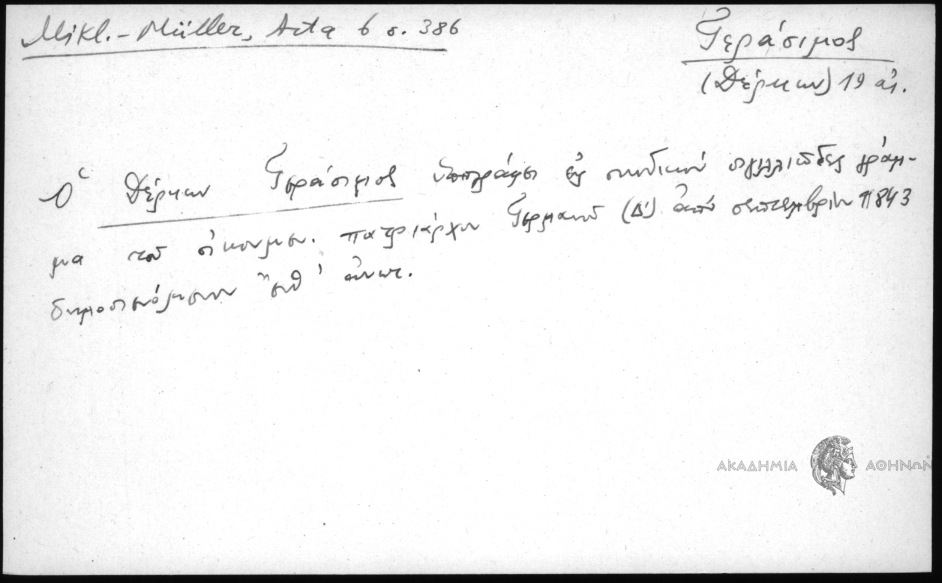 Mikl.-Müller, Acta 6 σ. 386
Γεράσιμος
(Δέρκων) 19 αἰ.
Ὁ Δέρκων Γεράσιμος ὑπογράφει εἰς συνοδικόν σιγιλλιῶδες γράμ-
μα τοῦ οἰκουμεν. πατριάρχου Γερμανοῦ (Δ') ἀπό σεπτεμβρίου 1843
δημοσιευόμενον ἔνθ' ἀνωτ.
ΑΚΑΔΗΜΙΑ ΑΘΗΝΩΝ